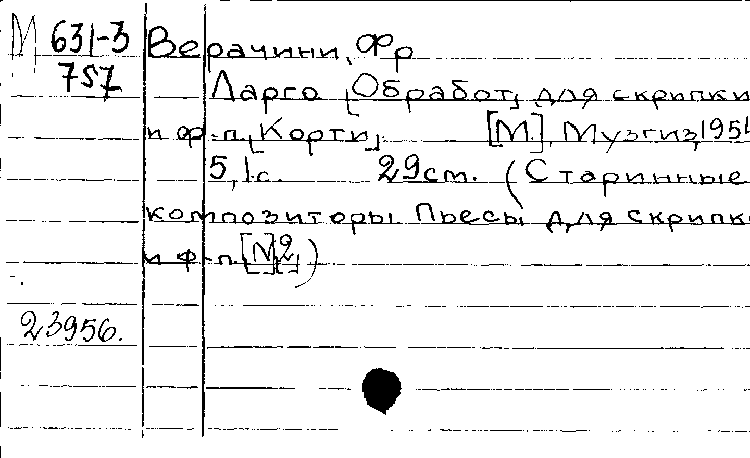 М 631-3 Верачини, Фр
757
Ларго [Обработ] для скрипки
и ф-п. [Корти] [М.], Музгиз, 1951
5,1 с. 29 см. (Старинные
композиторы. Пьесы для скрипк
и ф-п. [№2])
23956.